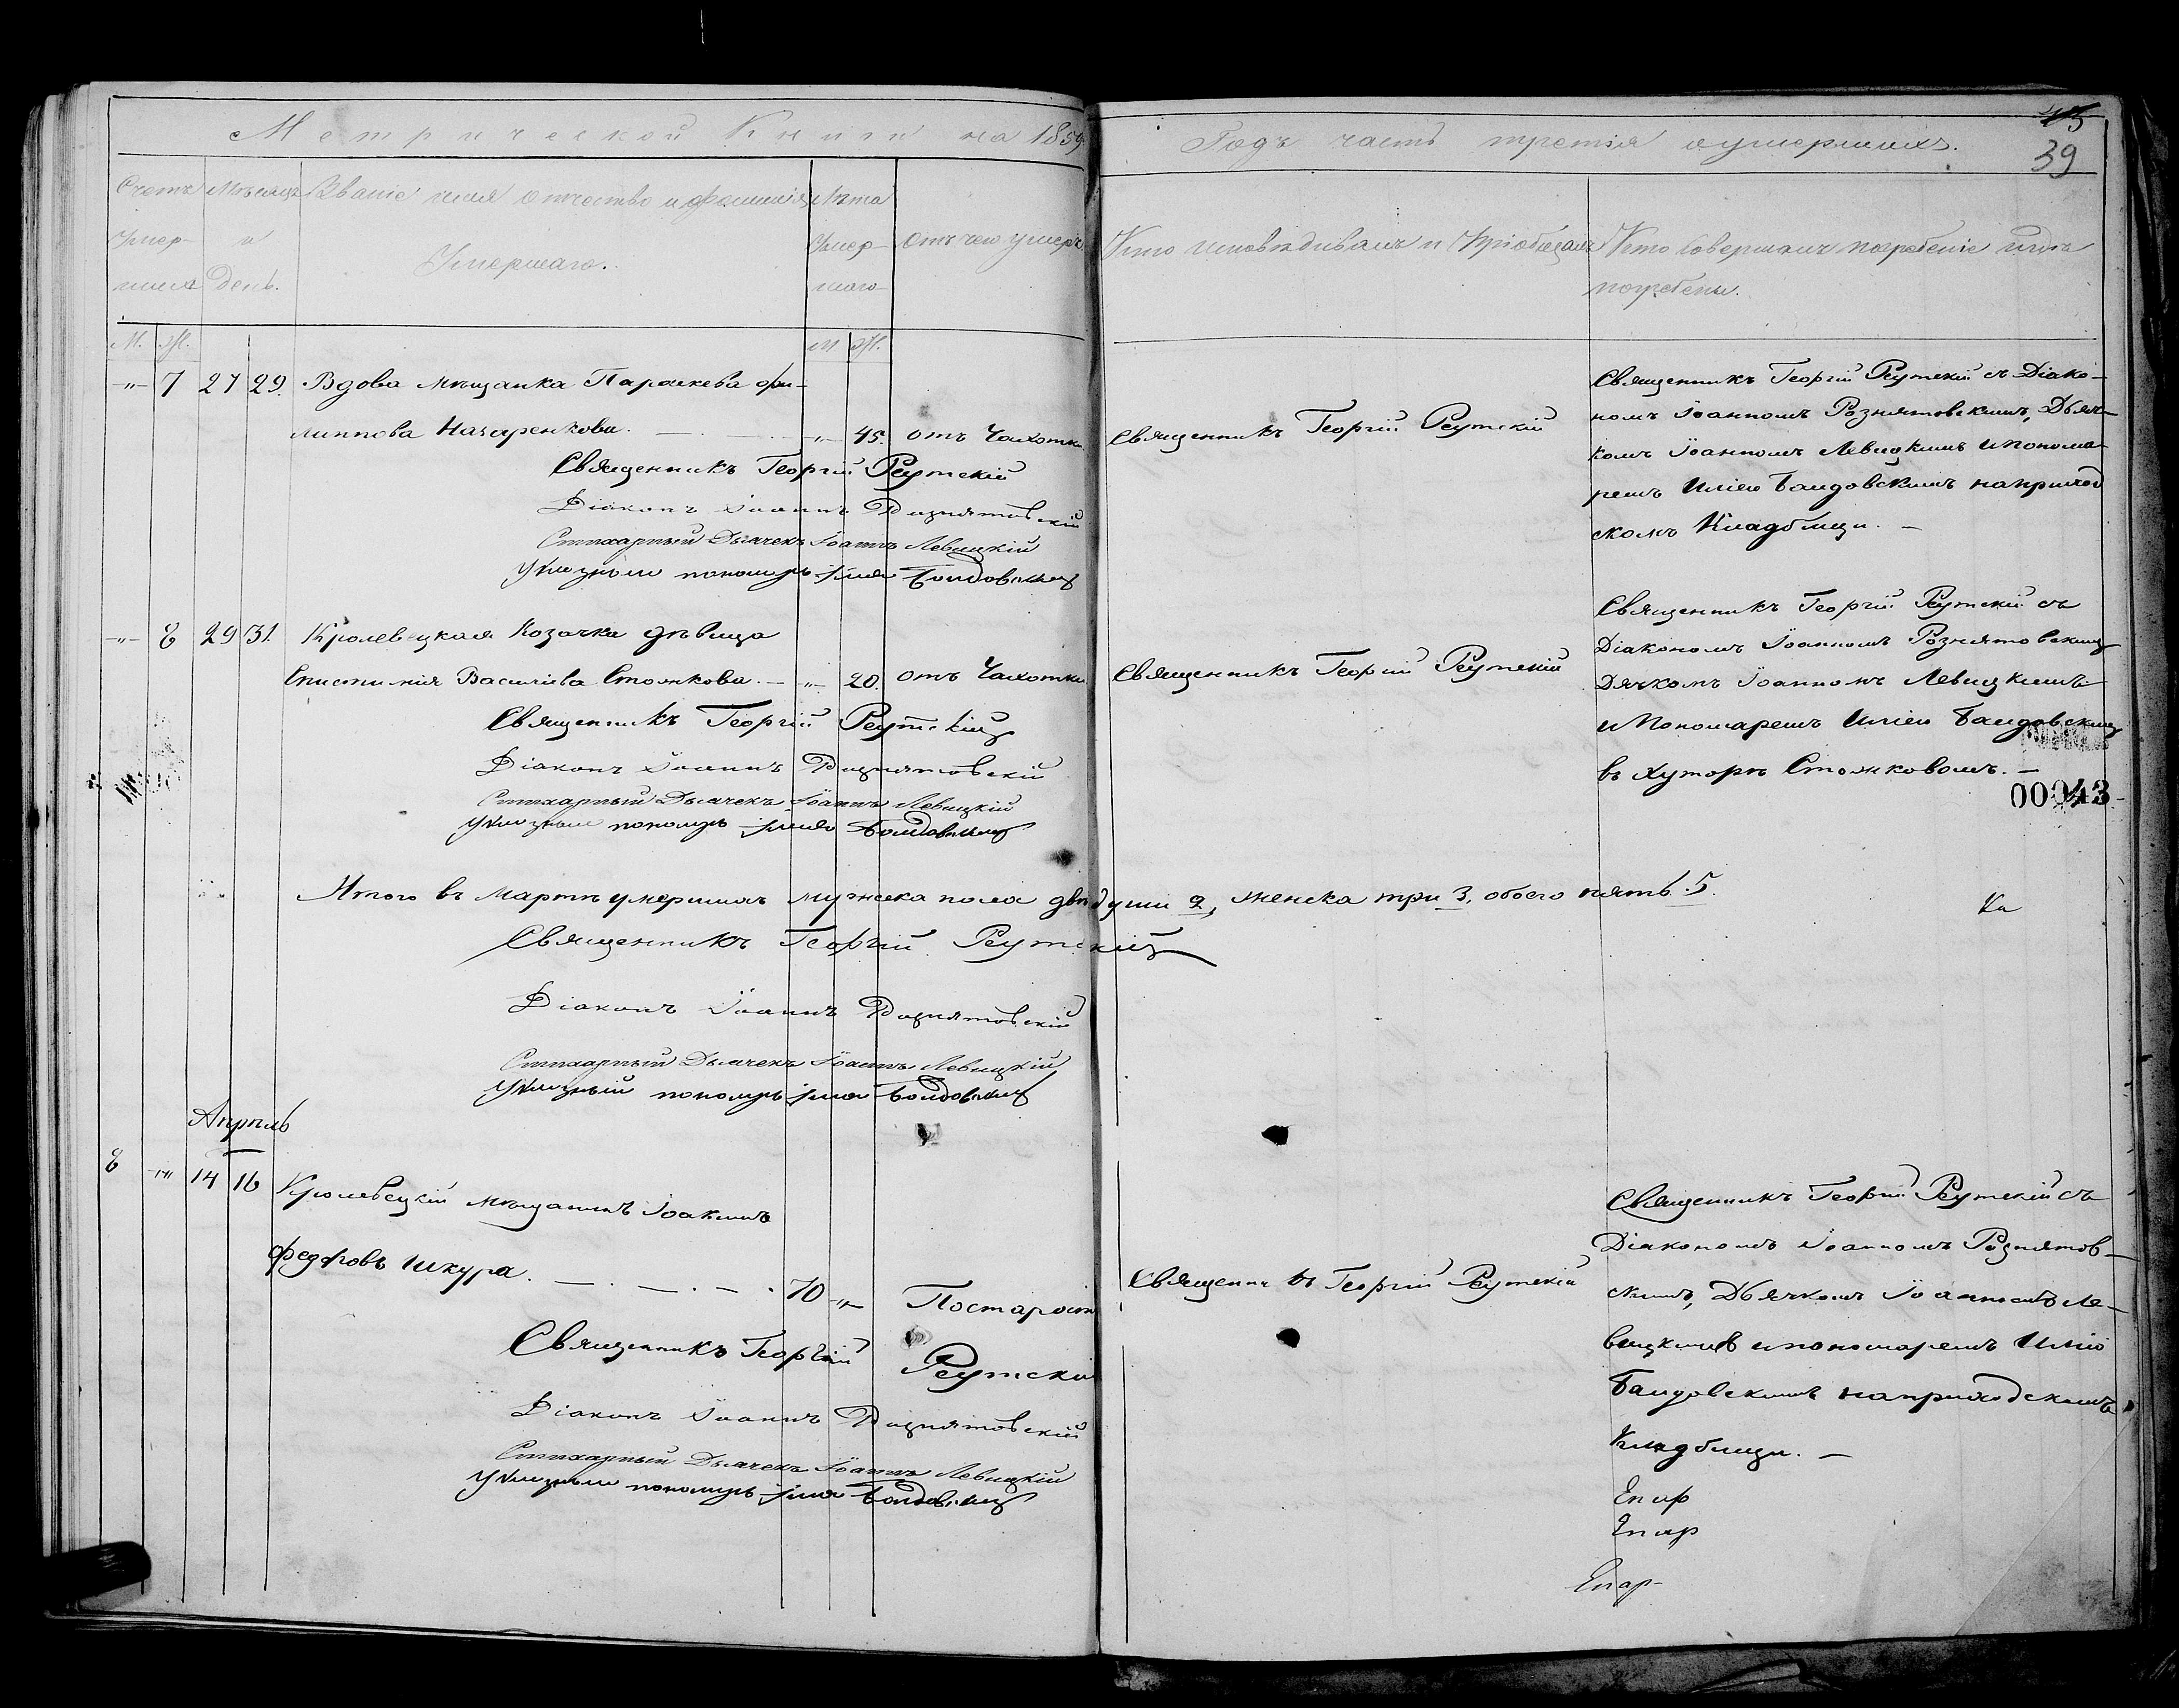 Метрической Книги на 1859
Годъ часть третія о умершихъ.
45
39
Счетъ умер-шихъ
Мѣсяцъ и день.
Званіе имя отчество и фамилія Умершаго.
Лѣта умер-шаго
Отъ чего умеръ
Кто исповѣдывалъ и Пріобщалъ
Кто Совершалъ погребеніе и гдѣ
погребены.
М. Ж.
М Ж.
-"- 7 27 29. Вдова мѣщанка Параскева Фи-
липпова Назаренкова. -"- 45. отъ Чахотки
Священникъ Георгій Реутскій
Діаконъ Іоаннъ Рознятовскій
Стихарный Дьячекъ Іоаннъ Левицкій
Указный пономарь Илія Баидовскій
Священникъ Георгій Реутскій
Священникъ Георгій Реутскій съ Діако-
номъ Іоанномъ Рознятовскимъ, Дьяч-
комъ Іоанномъ Левицкимъ и понома-
ремъ Иліею Баидовскимъ на приход
скомъ Кладбищи. —
-"- 8 29 31. Кролевецкая Козачка дѣвица
Епистимія Василіева Стожкова. — -"- 20. отъ Чахотки
Священникъ Георгій Реутскій
Діаконъ Іоаннъ Рознятовскій
Стихарный Дьячекъ Іоаннъ Левицкій
Указный пономарь Илія Баидовскій
Священникъ Георгій Реутскій
Священникъ Георгій Реутскій съ
Діакономъ Іоанномъ Рознятовскимъ
Дячкомъ Іоанномъ Левицкимъ
и Пономаремъ Иліею Баидовскимъ
въ Хуторѣ Стожковомъ. —
00043
Итого въ Мартѣ умершихъ мужеска пола двѣ души 2, женска три 3, обоего пять 5.
Ка
Священникъ Георгій Реутскій
Діаконъ Іоаннъ Рознятовскій
Стихарный Дьячекъ Іоаннъ Левицкій
Указный пономарь Илія Баидовскій
Апрѣль
8 -"- 14 16 Кролевецкій мѣщанинъ Іоакимъ
Федоровъ Шкура. — . — . — . 70 -"- По старости
Священникъ Георгій Реутскій
Діаконъ Іоаннъ Рознятовскій
Стихарный Дьячекъ Іоаннъ Левицкій
Указный пономарь Илія Баидовскій
Священникъ Георгій Реутскій
Священникъ Георгій Реутскій съ
Діакономъ Іоанномъ Рознятов-
скимъ, Дьячкомъ Іоанномъ Ле-
вицкимъ и пономаремъ Иліею
Баидовскимъ на приходскимъ
Кладбищи. —
Епар
Епар
Епар-